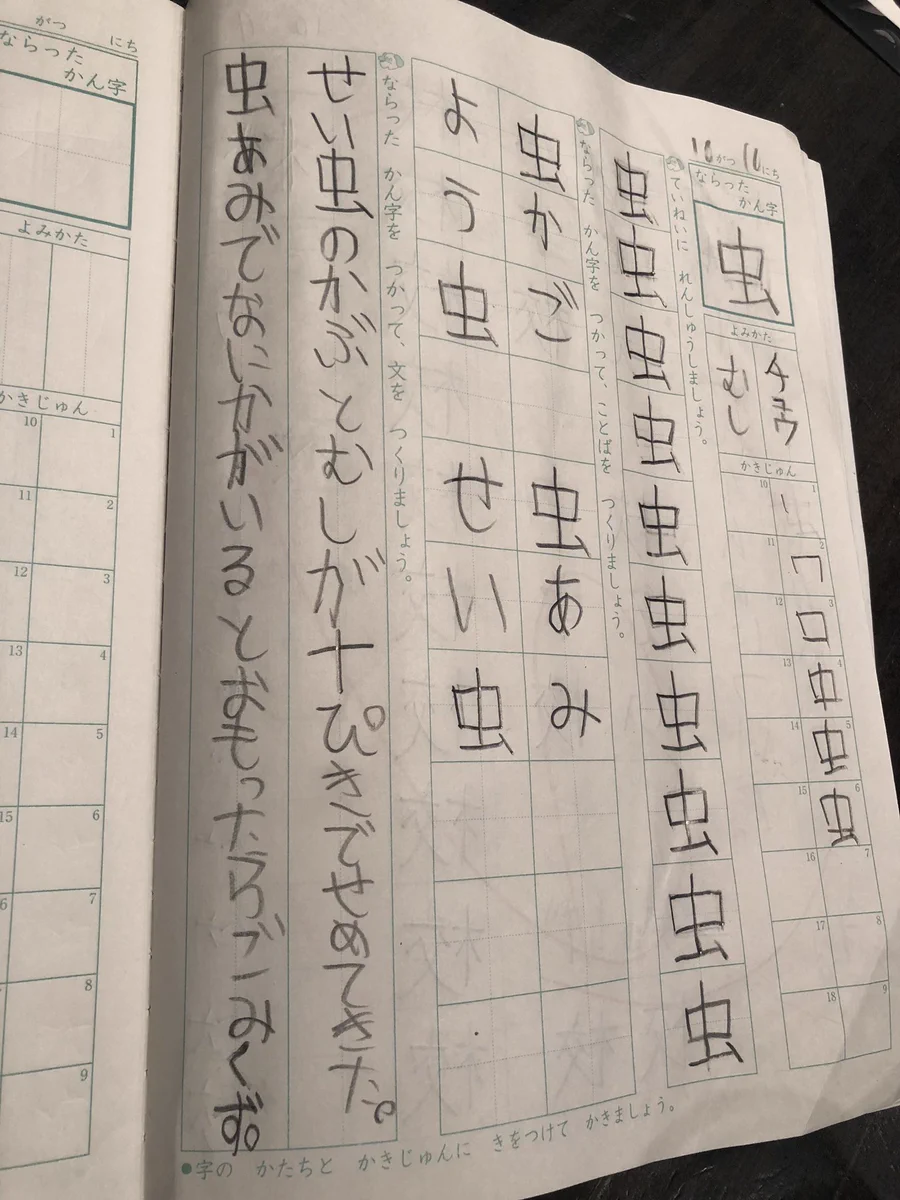 10がつ 11にち
ならった かん字
虫
よみかた
チュウ
むし
かきじゅん
1 2 3 4 5 6 7 8 9
10 11 12 13 14 15 16 17 18
ていねいに れんしゅうしましょう。
虫虫虫虫虫虫虫虫虫虫
ならった かん字を つかって、ことばを つくりましょう。
虫かご 虫あみ
よう虫 せい虫
ならった かん字を つかって、文を つくりましょう。
せい虫のかぶとむしが十ぴきでせめてきた。
虫あみでなにかがいるとおもったらごみくず。
●字の かたちと かきじゅんに きをつけて かきましょう。
がつ にち
ならった かん字
よみかた
かきじゅん
1 2 3 4 5 6 7 8 9
10 11 12 13 14 15